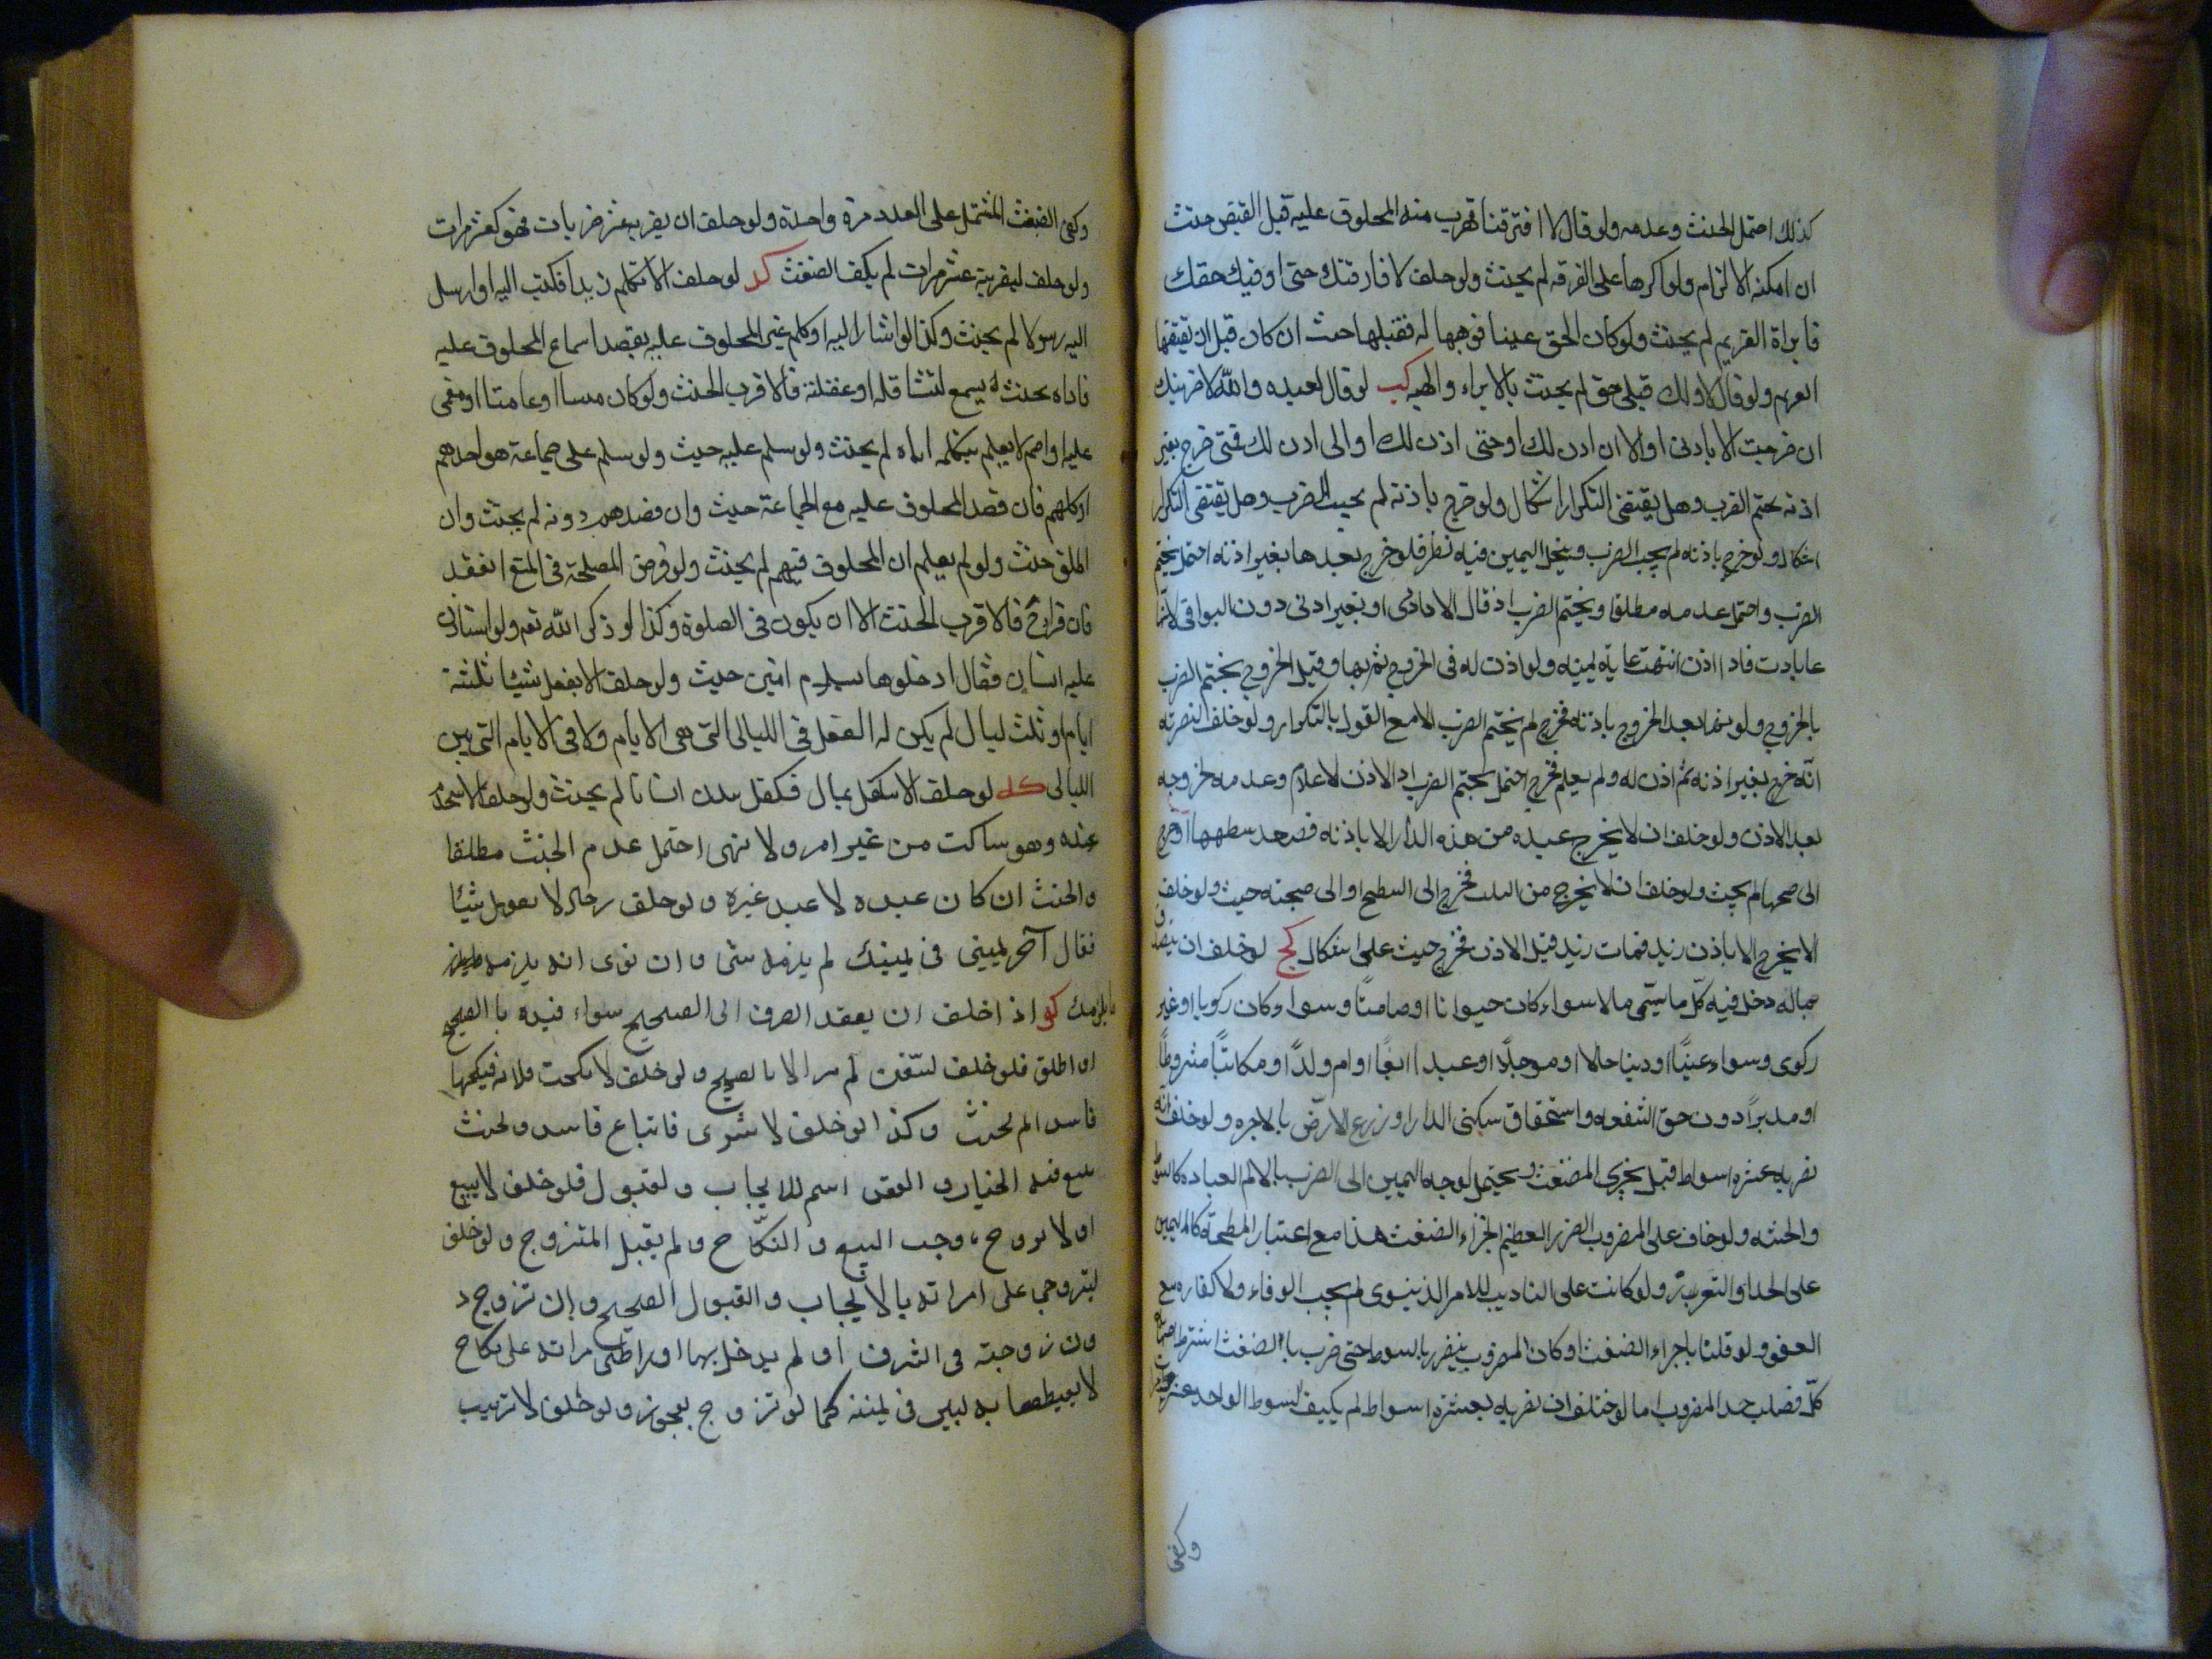 كذلك احتمل الحنث وعدمه ولو قال لا افترقنا فهرب منه المحلوف عليه قبل القبض حنث
ان امكنه الالزام ولو اكرها على الفرقه لم يحنث ولو حلف لا فارقتك حتى اوفيك حقك
فابراة الغريم لم يحنث ولو كان الحق عينا فوهبها له فقبلها حنث ان كان قبل ان يقبضها
الغريم ولو قال لا ولك قبلى حق لم يحنث بالابراء والهبه كب لو قال لعبده والله لاضربنك
ان خرجت الا باذنى او الا ان اذن لك او حتى اذن لك او الى اذن لك فمتى خرج بغير
اذنه تحتم الضرب وهل يقتضى التكرار اشكال ولو خرج باذنه لم يجب الضرب وهل يقتضى التكرار
اشكال ولو خرج باذنه لم يجب الضرب وينحل اليمين فيه نظر فلو خرج بعدها بغير اذنه احتمل تحتم
الضرب واحتمل عدمه مطلقا ويختم الضرب اذ قال الا باذنى او بغير اذنى دون البواقى لانها
غايات فاذا اذن انتهت غاية يمينه ولو اذن له فى الخروج ثم نهاه قبل الخروج يختم الضرب
بالخروج ولو نهاه بعد الخروج باذنه فخرج لم يختم الضرب الا مع القول بالتكرار ولو حلف لنضربه
انه خرج بغير اذنه ثم اذن له ولم يعلم فخرج احتمل تحتم الضرب اذ الاذن الاعلام وعدمه لخروجه
بعد الاذن ولو حلف ان لا يخرج عبده من هذه الدار الا باذنه فصعد سطحها او خرج
الى صحنها لم يحنث ولو حلف ان لا يخرج من البيت فخرج الى السطح او الى صحنه حنث ولو حلف
الا يخرج الا باذن زيد فمات زيد قبل الاذن فخرج حنث على اشكال كج لو حلف ان يتصدق
بماله دخل فيه كل ما يسمى مالا سواء كان حيوانا او صامتا وسواء كان زكويا او غير
زكوى وسواء عينا او دينا حالا او موجلا او عبدا ابقا او ام ولد او مكاتبا مشروطا
او مدبرا دون حق الشفعه واستحقاق سكنى الدار او زرع الارض بالاجره ولو حلف انه
نضربه عشره اسواط قيل يجزى الضغث ويحتمل توجه اليمين الى الضرب بالالم العباده كالسوط
والخشبه ولو خاف على المضروب الضرر العظيم اجزاء الضغث هذا مع اعتبار المصلحة كاليمين
على الحد او التعزير ولو كانت على التاديب للامر الدنيوى لم يجب الوفاء ولا كفاره مع
العفو ولو قلنا باجراء الضغث او كان المضروب يتضرر بالسوط حتى ضرب بالضغث اشترط اصابة
كل قضيب جسد المضروب اما لو حلف ان نضربه بعشرة اسواط لم يكيف السوط الواحد عشر مرات
وكفى
وكفى الضغث المشتمل على العدد مرة واحدة ولو حلف ان يضربه عشر ضربات فهو كعشر مرات
ولو حلف ليضربنه عشر مرات لم يكف الضغث كد لو حلف الا يكلم زيدا فكتب اليه او ارسل
اليه رسولا لم يحنث وكذا لو اشار اليه او كلم غير المحلوف عليه بقصد اسماع المحلوف عليه
فاداه بحيث لم يسمع لتشاغله او غفلته فالاقرب الحنث ولو كان ميتا او غائبا او مغمى
عليه او اصم لا يعلم بتكلمه اياه لم يحنث ولو سلم عليه حنث ولو سلم على جماعة هو احدهم
او كلهم فان قصد المحلوف عليه مع الجماعة حنث وان قصدهم دونه لم يحنث وان
اطلق حنث ولو لم يعلم ان المحلوف فيهم لم يحنث ولو فرض المصلحة فى المنع انعقد
فان قراخ فالاقرب الحنث الا ان يكون فى الصلوة وكذا لو ذكر الله تعم ولو استاذن
عليه انسان فقال ادخلوها بسلام امنين حنث ولو حلف الا يفعل شيئا ثلثة
ايام او ثلث ليال لم يكن له الفعل فى الليالى التى هى الايام ولا فى الايام التى بين
الليالى كه لو حلف الا يتكفل بمال فكفل ببدن انسان لم يحنث ولو حلف لا استخدم
عبده وهو ساكت من غير امر ولا نهى احتمل عدم الحنث مطلقا
والحنث ان كان عبده لا عبد غيره ولو حلف رجل لا يفعل شيئا
فقال آخر يمينى فى يمينك لم يلزمه شى وان نوى انه يلزمه
ما يلزمك كو اذا خلف ان يعقد الصرف الى الصحيح سواء قيده بالصحيح
او اطلق فلو خلف ليبيعن لم يبر الا بالصحيح ولو خلف لا نكحت فلانه فنكحها
فاسدا لم يحنث وكذا لو خلف لا شرى فابتاع فاسد ويحنث
ببيع فيه الخيار و العقد اسم للايجاب و لقبول فلو خلف لا يبيع
او لا يزوج، وجب البيع و النكاح و لم يقبل المتزوج و لو خلف
ليتزوجن على امراته بالايجاب و القبول الصحيح و ان تزوج د
ون زوجته فى الشرف او لم يدخل بها او راطئى مراته على نكاح
لا يغيظها به ليبر فى يمينه كما لو تزوج بعجوز و لو خلف لا تزبيب